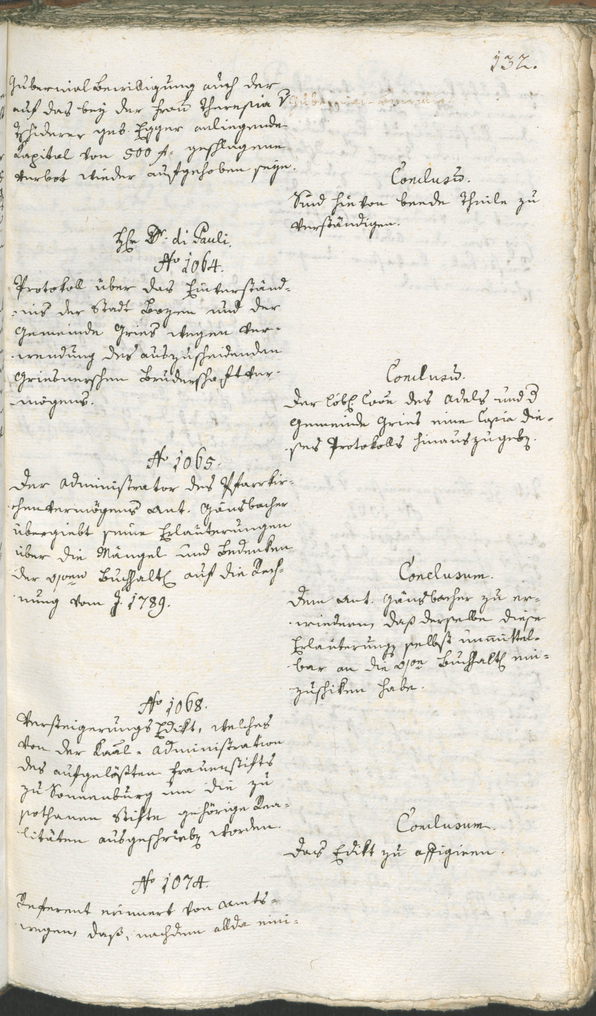 132.
Gubernial Bewilligung auch der
auf das bey der Frau Theresia v
Tschiderer geb Egger anliegende
Kapital von 500 f. geschlagene
Verbot wieder aufgehoben seye.
Conclusum.
Sind hievon beede Theile zu
verständigen.
Hr. Dr. di Pauli.
No 1064.
Protokoll über das Einverständ-
nis der Stadt Bozen und der
Gemeinde Gries wegen Ver-
wendung des auszuscheidenden
Griesnerschen Bruderschaft Ver-
mögens.
Conclusum.
Der löbl. des Adels und d
Gemeinde Gries eine Copia die-
ses Protokolls hinauszugeben.
No 1065.
Der Administrator des Pfarrkir-
chenvermögens Ant. Gänsbacher
übergiebt seine Erläuterungen
über die Mängel und Bedenken
der Buchhalt. auf die Rech-
nung vom J. 1789.
Conclusum.
Dem Ant. Gänsbacher zu er-
wiedern, daß derselbe diese
Erläuterung selbst unmittel-
bar an die Buchhalt. ein-
zuschiken habe.
No 1068.
Versteigerungs Edikt, welches
von der Kaal. Administration
des aufgelößten Frauenstifts
zu Sonnenburg um die zu
gethanen Stifte gehörige Rea-
litäten ausgeschrieben worden.
Conclusum.
Das Edikt zu affigiren.
No 1074.
Referent erinnert von Amts-
wegen, daß, nachdem allda eini-